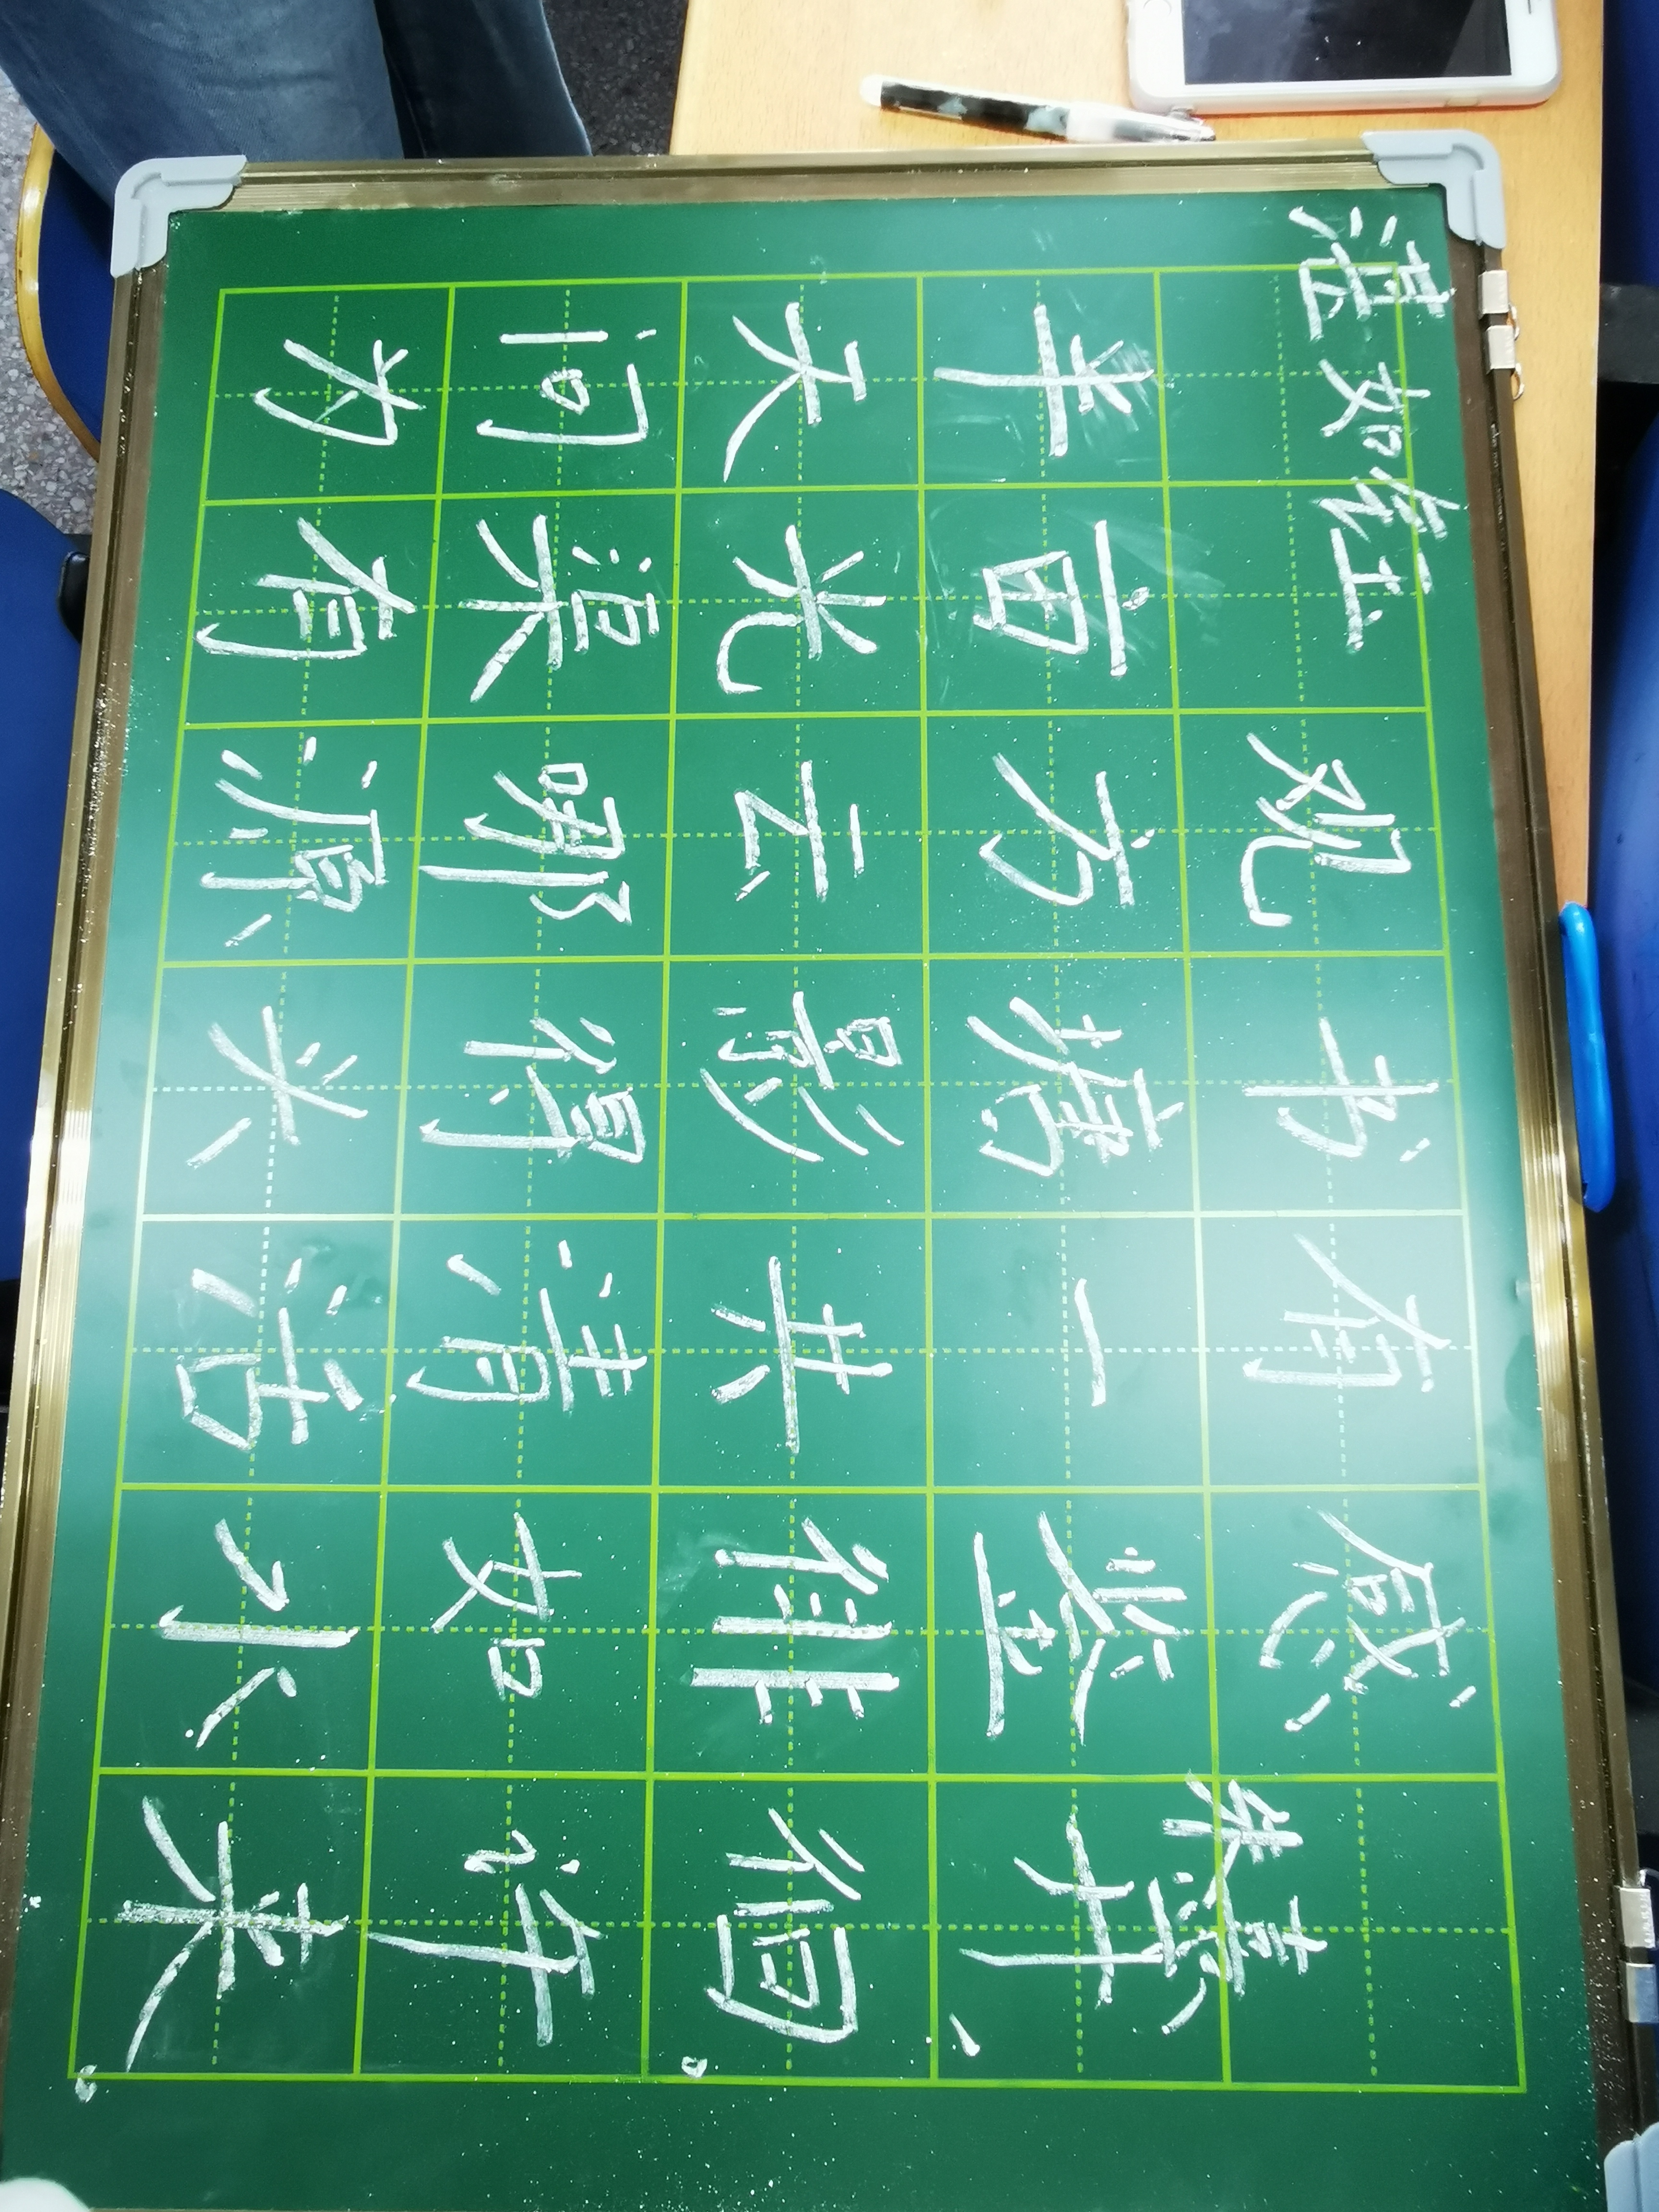 湛如钰
观书有感
朱熹
半亩方塘一鉴开,
天光云影共徘徊。
问渠哪得清如许?
为有源头活水来。